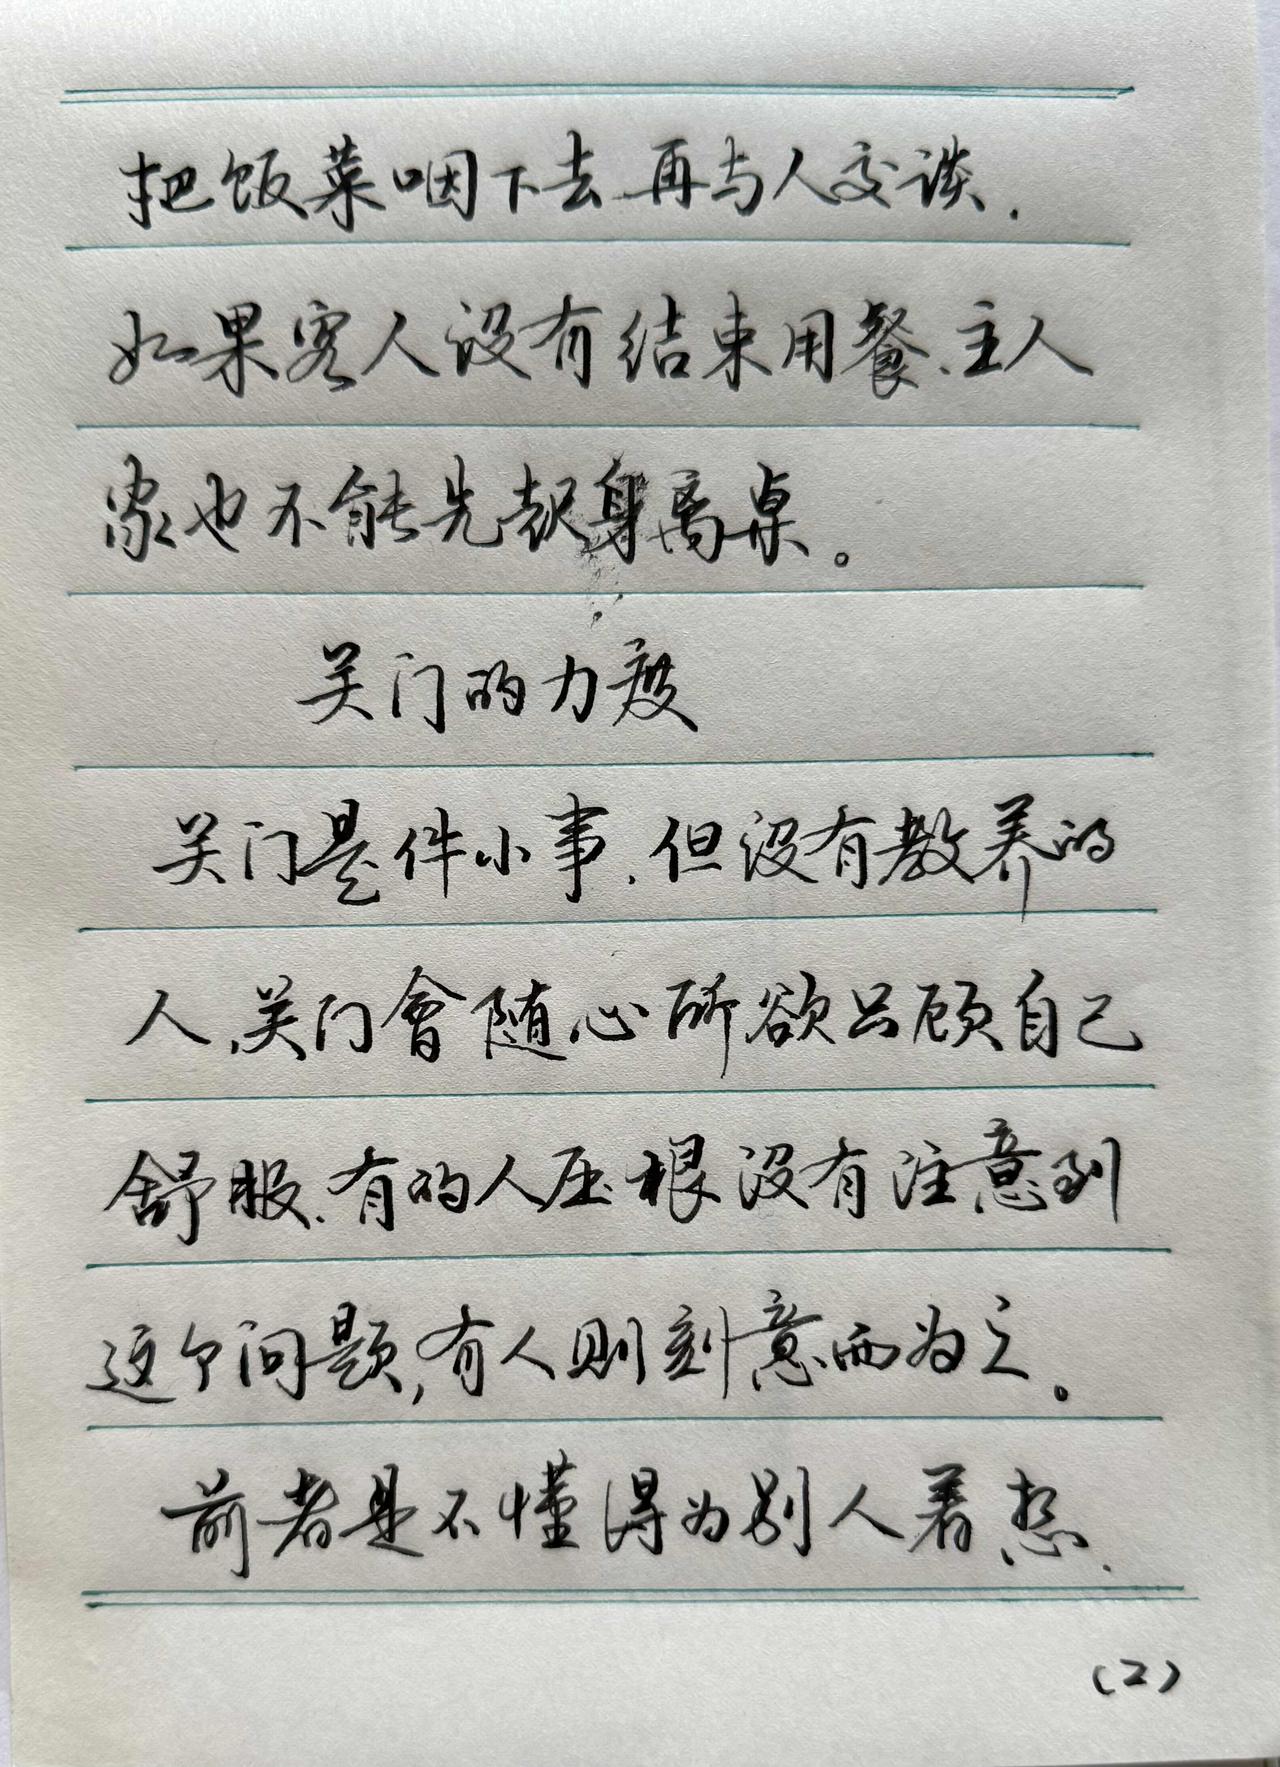 把饭菜咽下去再与人交谈.
如果客人没有结束用餐、主人
家也不能先起身离桌。
关门的力度
关门是件小事.但没有教养的
人、关门會随心所欲只顾自己
舒服.有的人压根没有注意到
这个问题,有人则刻意而为之。
前者是不懂得为别人着想.
(2)